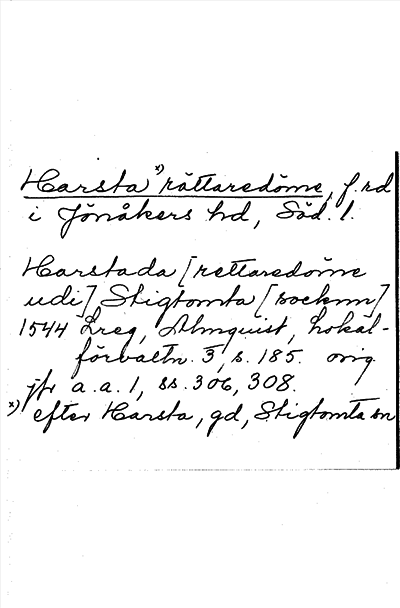 Harsta x) rättaredöme, f.rd
i Jönåkers hd, Söd. l.
Harstada [rettaredöme
udi] Stigtomta [socknn]
1544 Lreg, Almquist, Lokal-
förvaltn. 3, s. 185. orig.
jfr a.a. 1, ss. 306, 308.
x) efter Harsta, gd, Stigtomta sn